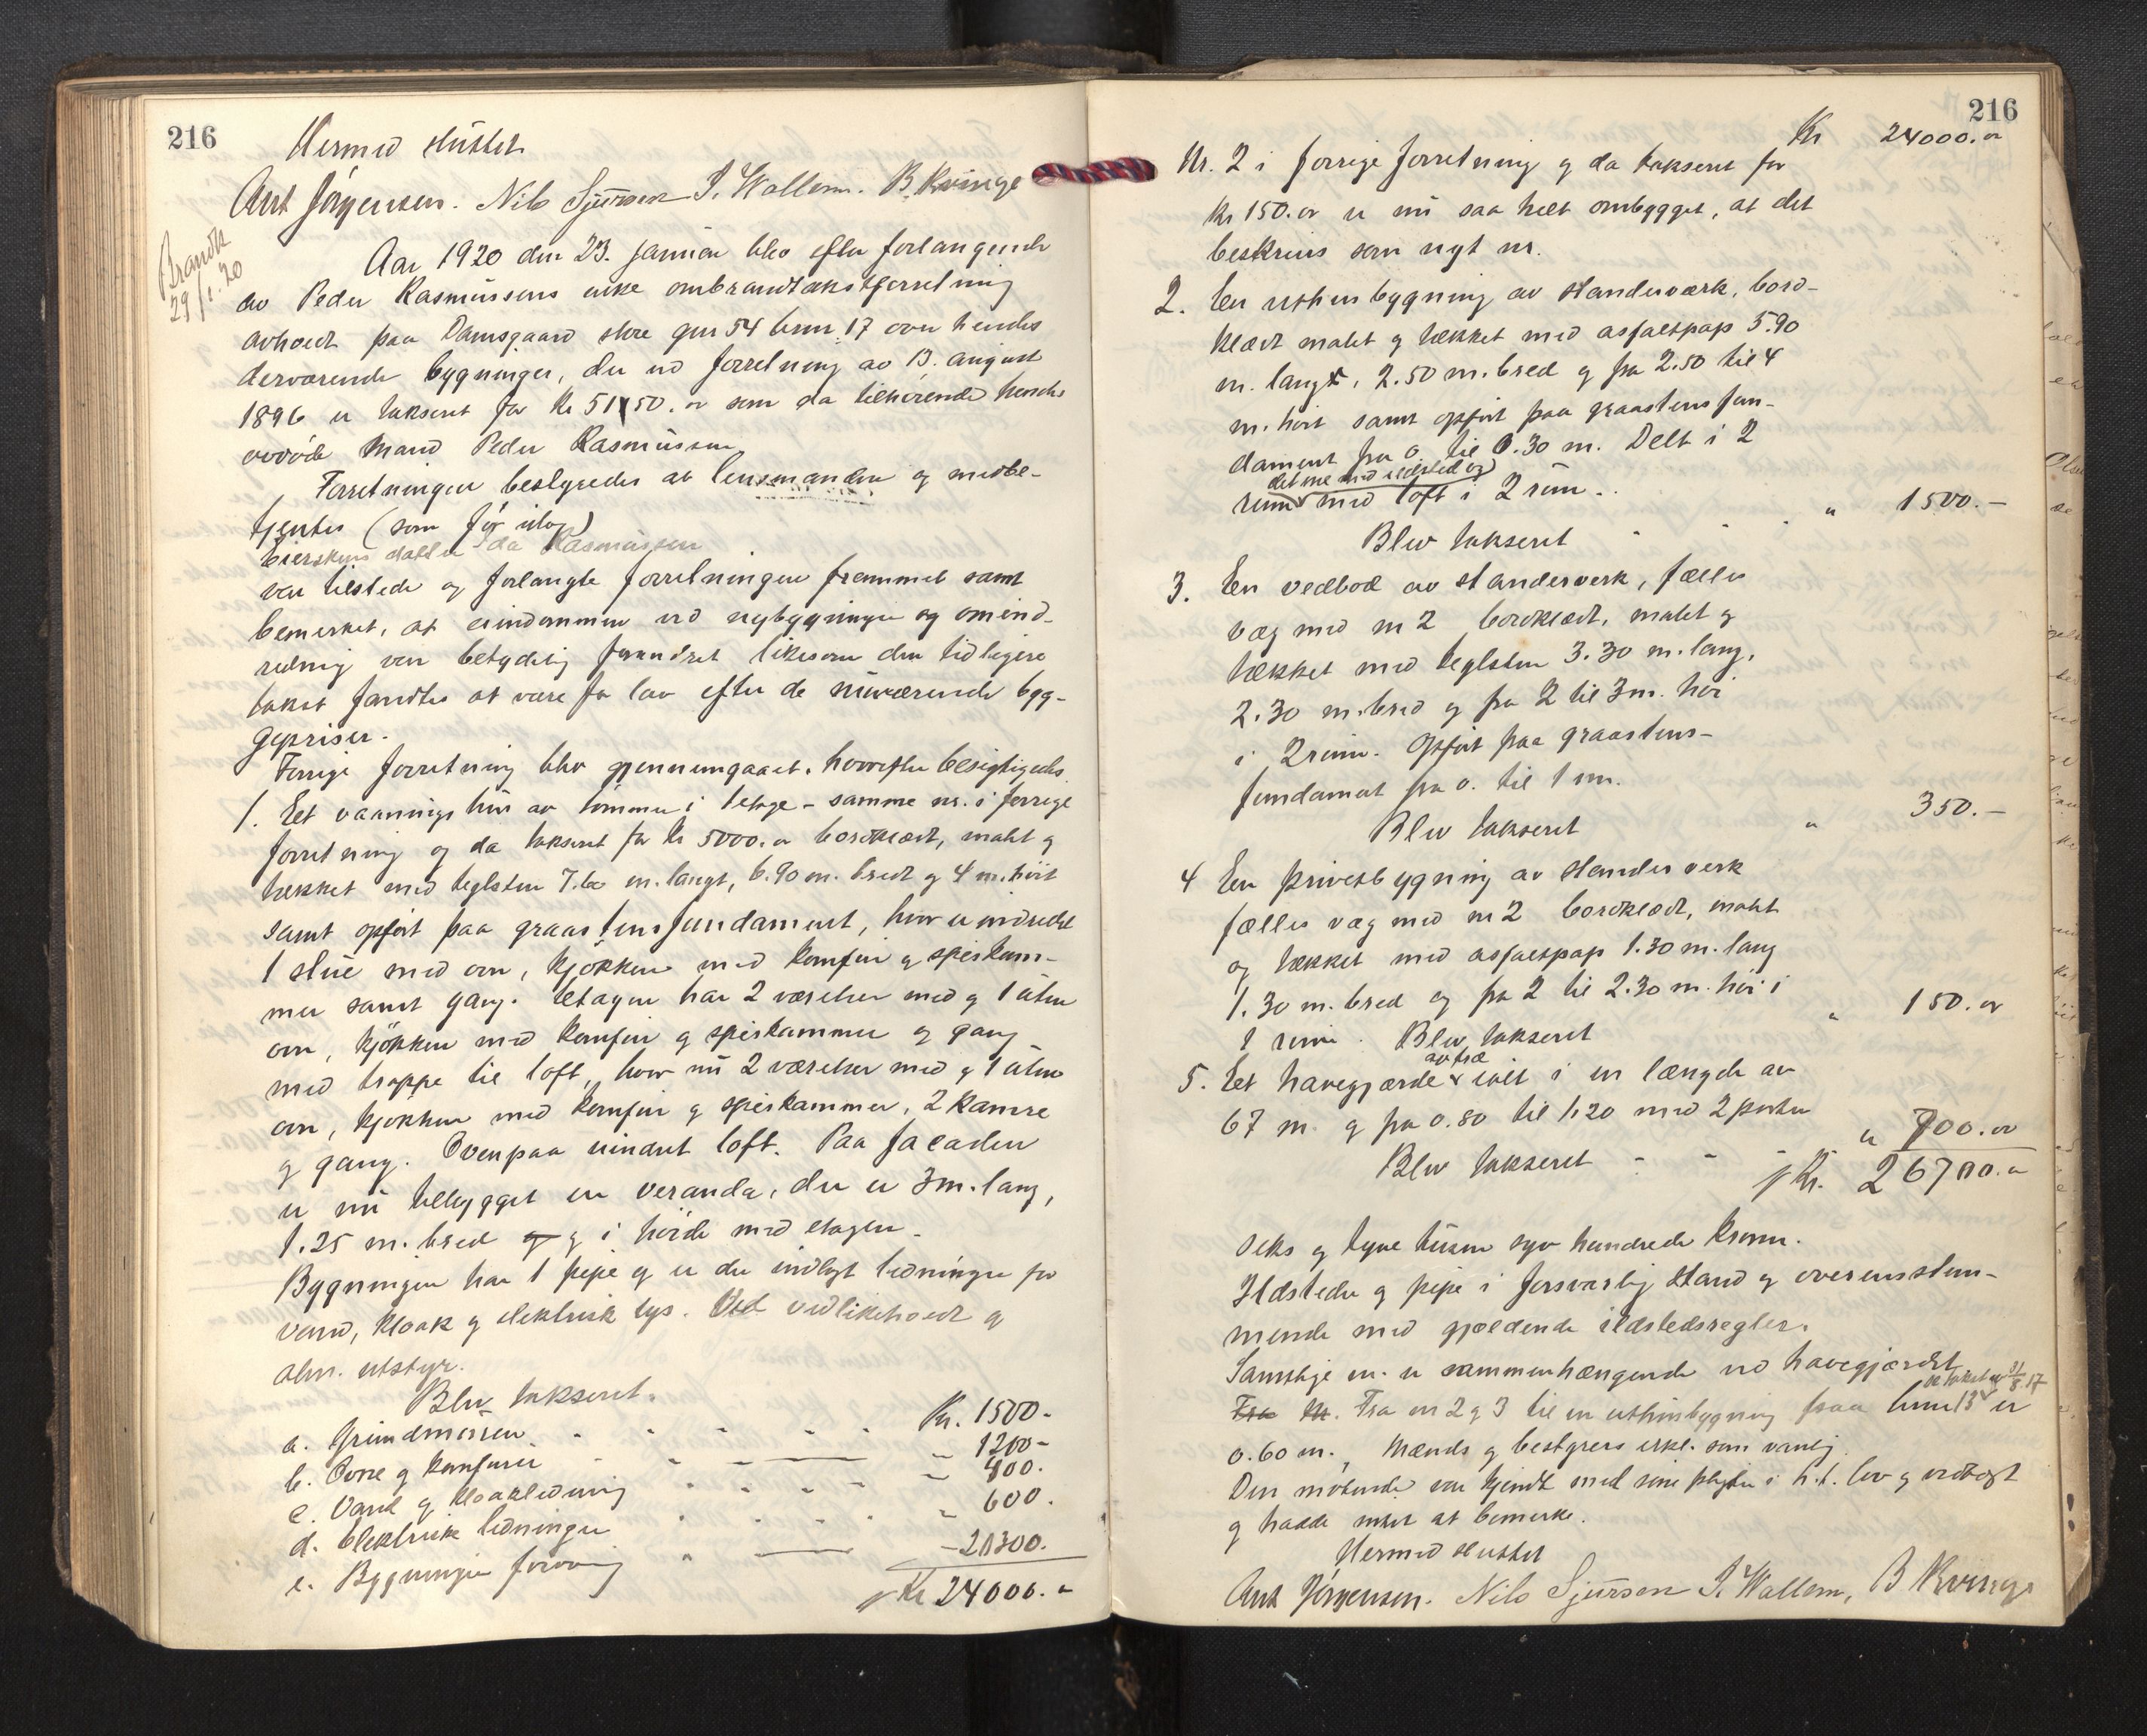 216
Hermed sluttet
Ant Jörgensen. Nils Sjursen S. Wallem. B. Kvinge
Brandt
29/1. 20
Aar 1920 den 23. januar blev efter forlangende
av Peder Rasmussens enke ombrandtakstforretning
avholdt paa Damsgaard store gnr 54 brnr 17 over hendes
derværende bygninger, der ved forretning av 13. august
1896 er takseret for Kr 5150.or som da tilhørende hendes
avdöde mand Peder Rasmussen
Forretningen bestyredes av lensmanden og medbe-
tjentes (som för idag)
Eierskens datter Ida Rasmussen
var tilstede og forlangte forretningen fremmet samt
bemerket, at eiendommen ved nybygninger og omind-
redning var betydelig forandret likesom den tidligere
takst fandtes at være for lav efter de nuværende byg-
gepriser.
Forrige forretning blev gjennemgaaet, hvorefter besigtigedes
1. Et vaaningshus av tömmer i 1 etage - samme nr. i forrige
forretning og da takseret for kr 5000.or bordklædt, malt og
tækket med teglsten 7.60 m. langt, 6.90 m. bredt og 4 m. höit
samt opfört paa graastensfundament, hvor er indredet
1 stue med ovn, kjökken med komfur og spiskam-
mer samt gang. Etagen har 2 værelser med og 1 uten
ovn, kjökken med komfur og spiskammer og gang
med trappe til loft, hvor nu 2 værelser med og 1 uten
ovn, kjökken med komfur og spiskammer, 2 kamre
og gang. Ovenpaa uindredt loft. Paa facaden
er nu tilbygget en veranda, der er 3 m. lang,
1.25 m. bred og og i höide med etagen.
Bygningen har 1 pipe og er der indlagt ledninger for
vand, kloak og elektrisk lys. Ved vedlikeholdt og
alm. utstyr.
Blev takseret.
a. Grundmuren - - - - - Kr. 1500-
b. Ovne og komfurer - - - - - 1200-
c. Vand og kloakledning - - - - - 400.
d. Elektrisk ledninger - - - - - 600.
e. Bygningen forövrig - - - 20300.
Kr 24000.-
216
Kr 24000.or
Nr. 2 i forrige forretning og da takseret for
kr 150.or er nu saa helt ombygget, at det
beskrives som nyt nr.
2. En uthusbygning av standerværk, bord-
klædt malet og tækket med asfaltpap 5.90
m. langt, 2.50 m. bred og fra 2.50 til 4
m. höit samt opfört paa graastensfun-
dament fra 0 til 0.30 m. Delt i 2
det ene med ildsted og
rum med loft i 2 rum..
Blev takseret - - - " 1500.-
3. En vedbod av standerverk, fælles
væg med nr 2 bordklædt, malet og
tækket med teglsten 3.30 m. lang,
2.30 m. bred og fra 2 til 3 m. höi
i 2 rum. Opfört paa graastens-
fundament fra 0. til 1 m.
Blev takseret " 350.-
4 En privetbygning av standerverk
fælles væg med nr 2 bordklædt, malet
og tækket med asfaltpap 1.30 m. lang
1.30 m. bred og fra 2 til 2.30 m. höi i
1 rum. Blev takseret " 150.or
av træ
5. Et havegjærde ialt i en længde av
67 m. og fra 0.80 til 1.20 med 2 porter
Blev takseret - - - " 700.or
Kr. 26700.-
Seks og tyve tusen syv hundrede kroner.
Ildsteder og pipe i forsvarlig stand og overensstem-
mende med gjældende ildstedsregler.
Samtlige nr. er sammenhængende ved havegjærdet
se takst av 31/8.17
Fra nr. Fra nr 2 og 3 til en uthusbygning paa brnr 13 er
0.60 m., Mænds og bestyrers erkl. som vanlig.
Den mötende var kjendt med sine pligter i h.t. lov og vedtægt
og hadde intet at bemerke.
Hermed sluttet
Ant Jörgensen. Nils Sjursen S. Wallem, B Kvinge